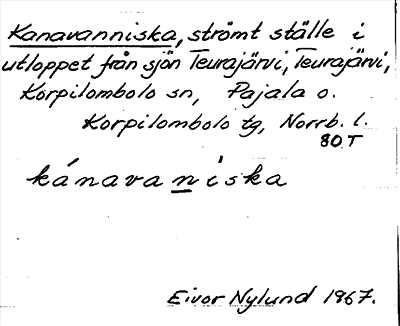 Kanavanniska, strömt ställe i
utloppet från sjön Teurajärvi, Teurajärvi,
Korpilombolo sn, Pajala o.
Korpilombolo tg, Norrb. l.
80 T
kánavaniska
Eivor Nylund 1967.